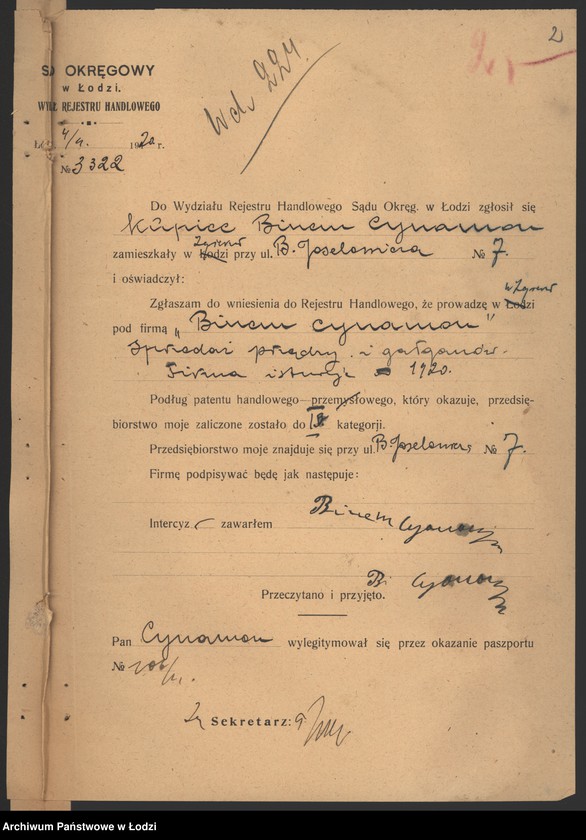 2
Wd. 224.
OKRĘGOWY
w Łodzi.
REJESTRU HANDLOWEGO
1920 r.
№ 3322
Do Wydziału Rejestru Handlowego Sądu Okręg. w Łodzi zgłosił się
Kupiec Binem Cynamon
Zgierzu
zamieszkały w Łodzi przy ul. B. Joselewicza № 7.
i oświadczył:
w Zgierzu
Zgłaszam do wniesienia do Rejestru Handlowego, że prowadzę w Łodzi
pod firmą „Binem Cynamon"
Sprzedaż przędzy i gałganów.
Firma istnieje 1920.
Podług patentu handlowego—przemysłowego, który okazuje, przedsię-
biorstwo moje zaliczone zostało do kategorji.
Przedsiębiorstwo moje znajduje się przy ul. B. Joselewicza № 7.
Firmę podpisywać będę jak następuje:
Binem Cynamon
Intercyz zawarłem
B Cynamon
Przeczytano i przyjęto.
Pan Cynamon wylegitymował się przez okazanie paszportu
№
Sekretarz:
Archiwum Państwowe w Łodzi